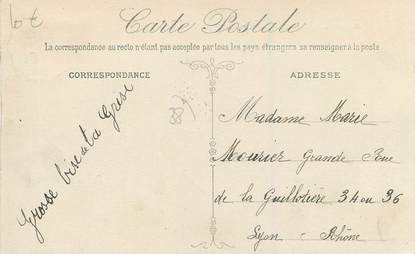 Lot
Carte Postale
La correspondance au recto n'étant pas acceptée par tous les pays étrangers se renseigner à la poste
CORRESPONDANCE
ADRESSE
38
Grosse bise de ta Grise
Madame Marie
Mourier Grande Rue
de la Guillotière 34 ou 36
Lyon - Rhône